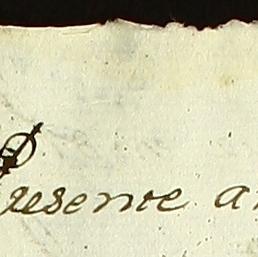 Presente a